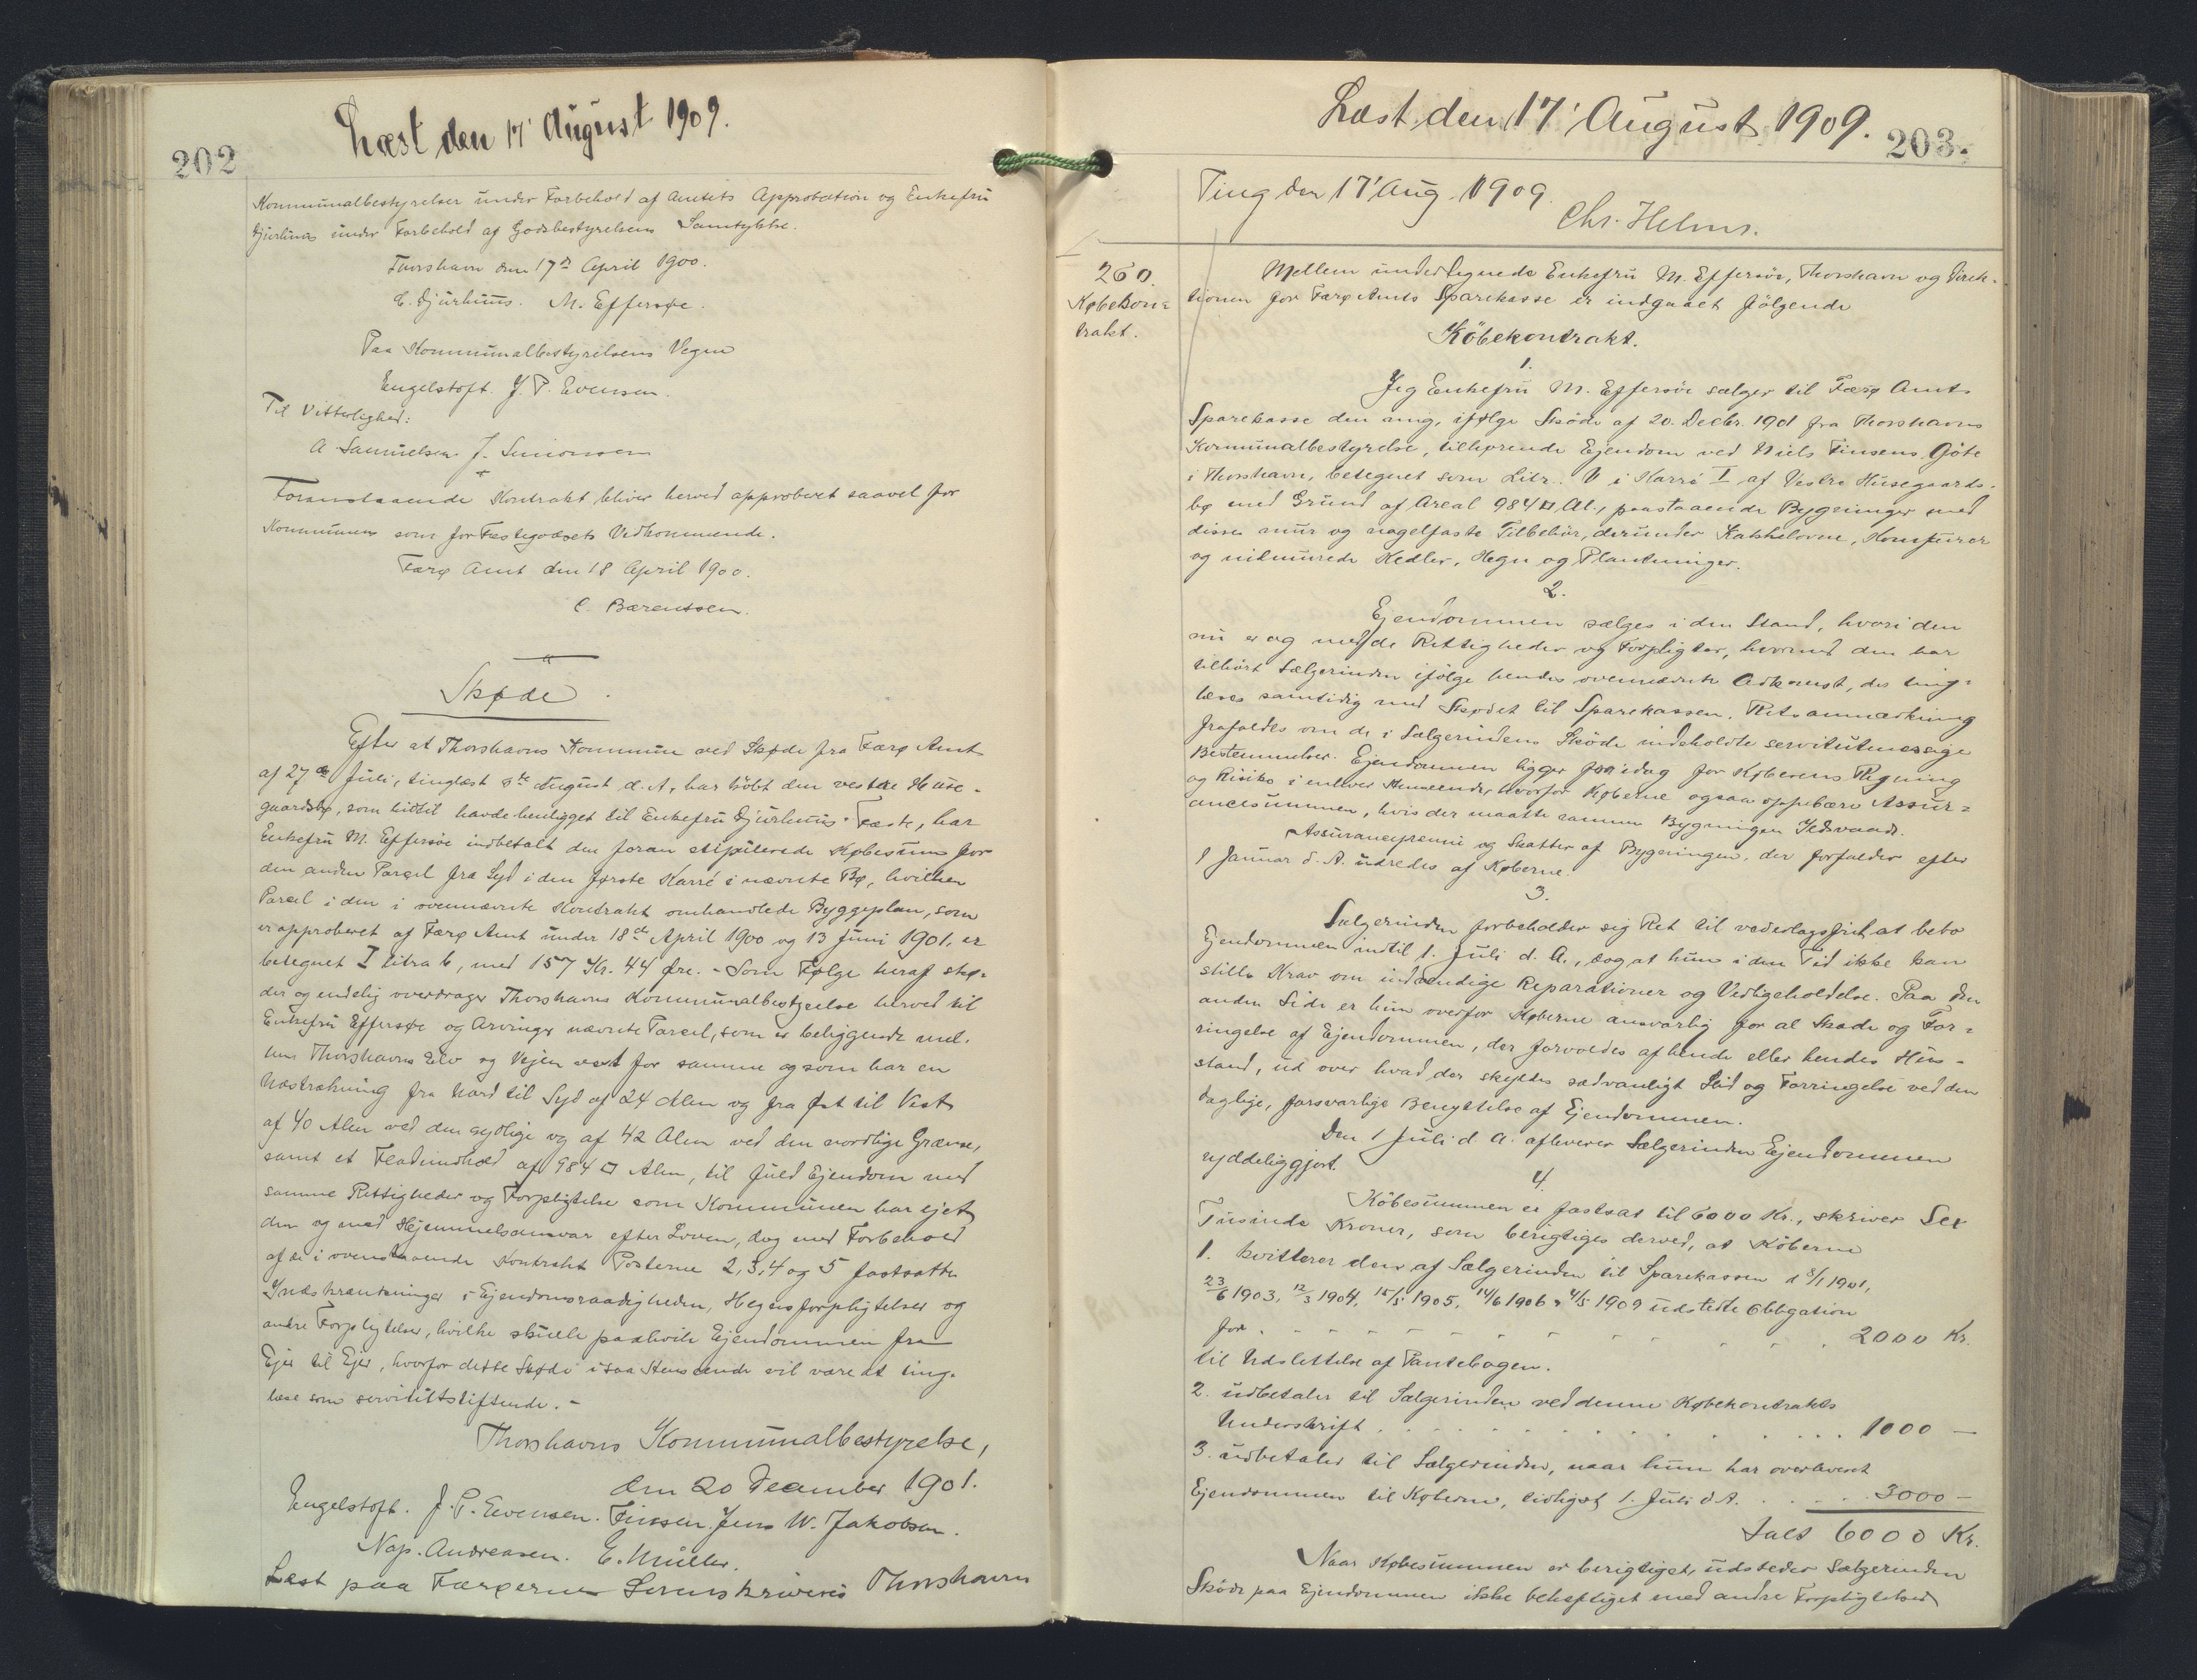 Læst den 17' August 1909.
202
Kommunalbestyrelser under Forbehold af Amtets Approbation og Enkefru
Djurhuus under Forbehold af Godsbestyrelsens Samtykke.
Thorshavn den 17de April 1900.
E. Djurhuus. M. Effersøe.
Paa Kommunalbestyrelsens Vegne
Engelstoft. J. P. Evensen.
Til Vitterlighed:
A Samuelsen J. Simonsen
Foranstaaende Kontrakt bliver herved approberet saavel for
Kommunen som for Fæstegodsets Vedkommende.
Færø Amt den 18 April 1900.
C. Bærentsen.
"
Skøde.
Efter at Thorshavns Kommune ved Skøde fra Færø Amt
af 27de Juli, tinglæst 8de August d. A, har købt den vestre Huse-
gaardsbø, som hidtil havde henligget til Enkefru Djurhuus' Fæste, har
Enkefru M. Effersøe indbetalt den foran stipulerede Købesum for
den anden Parcel fra Syd i den første Karré i nævnte Bø, hvilken
Parcel i den i ovennævnte Kontrakt omhandlede Byggeplan, som
er approberet af Færø Amt under 18de April 1900 og 13 Juni 1901, er
betegnet I litra b, med 157 Kr. 44 Øre. - Som Følge heraf skø-
der og endelig overdrager Thorshavns Kommunalbestyrelse herved til
Enkefru Effersøe og Arvinger nævnte Parcel, som er beliggende mel-
lem Thorshavns Elv og Vejen vest for samme og som har en
Udstrækning fra Nord til Syd af 24 Alen og fra Øst til Vest
af 40 Alen ved den sydlige og af 42 Alen ved den nordlige Grænse,
samt et Fladeindhold af 984 □ Alen, til fuld Ejendom med
samme Rettigheder og Forpligtelse som Kommunen har ejet
den og med Hjemmelsansvar efter Loven, dog med Forbehold
af de i ovenstaaende Kontrakt Posterne 2, 3, 4 og 5 fastsatte
Indskrænkninger i Ejendomsraadigheden, Hegnsforpligtelser og
andre Forpligtelser, hvilke skulle paahvile Ejendommen fra
Ejer til Ejer, hvorfor dette Skøde i saa Henseende vil være at ting-
læse som servitutstiftende. -
Thorshavns Kommunalbestyrelse,
den 20 December 1901.
Engelstoft. J. P. Evensen. Finsen. Jens W. Jakobsen.
Nap. Andreasen. E. Müller.
Læst paa Færøernes Sorenskriveris Thorshavns
Læst den 17' August 1909.
203.
Ting den 17' Aug. 1909.
Chr. Helms.
260.
Købekon=
trakt.
Mellem undertegnede Enkefru M. Effersöe, Thorshavn og Direk-
tionen for Færø Amts Sparekasse er indgaaet følgende
Köbekontrakt.
1.
Jeg Enkefru M. Effersöe sælger til Færø Amts
Sparekasse den mig, ifølge Skøde af 20. Decbr. 1901 fra Thorshavns
Kommunalbestyrelse, tilhørende Ejendom ved Niels Finsens Göte
i Thorshavn, betegnet som Litr. b i Karré I af Vestre Husegaards-
bø med Grund af Areal 984 □ Al., paastaaende Bygninger med
disses mur og nagelfaste Tilbehör, derunder Kakkelovne, Komfurer
og indmurede Kedler, Hegn og Plantninger.
2.
Ejendommen sælges i den Stand, hvori den
nu er og med de Rettigheder og Forpligter, hvormed den har
tilhört Sælgerinden ifölge hendes ovennævnte Adkomst, der ting-
læses samtidig med Skødet til Sparekassen. Retsanmærkning
frafaldes om de i Sælgerindens Skøde indeholdte servitutmæssige
Bestemmelser. Ejendommen ligger fra idag for Køberens Regning
og Risiko i enhver Henseende, hvorfor Køberne ogsaa oppebære Assur=
ancesummen, hvis der maatte ramme Bygningen Ildsvaade.
Assurancepræmie og Skatter af Bygningen, der forfalder efter
1 Januar d. A. udredes af Køberne.
3.
Sælgerinden forbeholder sig Ret til vederlagsfrit at bebo
Ejendommen indtil 1. Juli d. A., dog at hun i den Tid ikke kan
stille Krav om indvendige Reparationer og Vedligeholdelse. Paa den
anden Side er hun overfor Køberne ansvarlig for al Skade og For=
ringelse af Ejendommen, der forvoldes af hende eller hendes Hus-
stand, ud over hvad der skyldes sædvanligt Slid og Forringelse ved den
daglige, forsvarlige Benyttelse af Ejendommen.
Den 1 Juli d. A. afleverer Sælgerinden Ejendommen
ryddeliggjort.
4.
Købesummen er fastsat til 6000 Kr., skriver Sex
Tusinde Kroner, som berigtiges derved, at Köberne
1. kvitterer den af Sælgerinden til Sparekassen d 8/1 1901,
23/6 1903, 12/3 1904, 15/5 1905, 14/6 1906 & 4/5 1909 udstedte Obligation
for . . . . . . . . . . . 2000 Kr.
til Udslettelse af Pantebogen.
2. udbetaler til Sælgerinden ved denne Købekontrakts
Underskrift . . . . . . . . . . . 1000 —
3. udbetaler til Sælgerinden, naar hun har overleveret
Ejendommen til Køberne, tidligst 1. Juli d. A. . . . . . 3000 —
Ialt 6000 Kr.
Naar Købesummen er berigtiget, udsteder Sælgerinden
Skøde paa Ejendommen ikke behæftiget med andre Forpligtelser